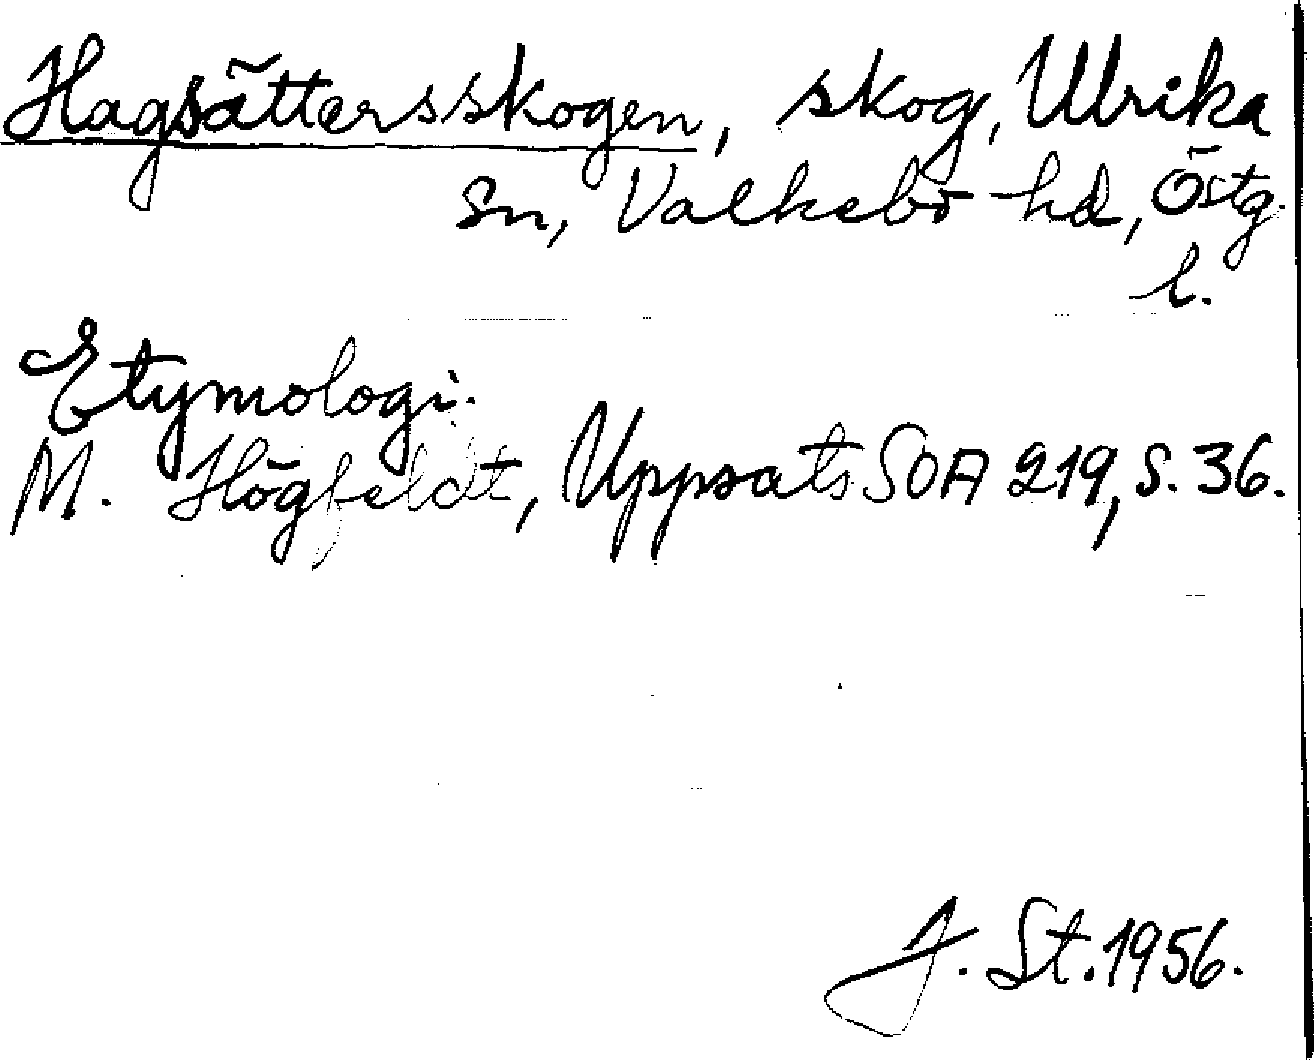 Hagsättersskogen, skog, Ulrika
sn, Valkebo hd, Östg.
l.
Etymologi.
M. Högfeldt, Uppsats SOA 219, s. 36.
J. St. 1956.